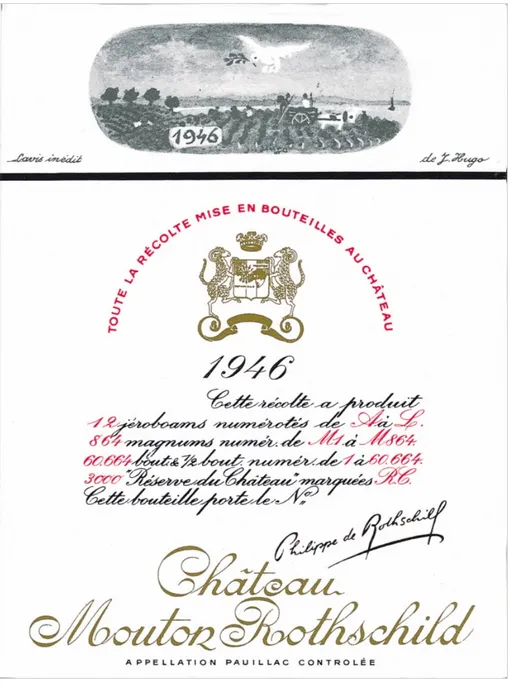 1946
Lavis inédit
de J. Hugo
TOUTE LA RÉCOLTE MISE EN BOUTEILLES AU CHÂTEAU
1946
Cette récolte a produit
12 jéroboams numérotés de A à L.
864 magnums numér. de M1 à M864
60.664 bout & 1/2 bout. numér. de 1 à 60.664.
3000 "Réserve du Château" marquées R.C.
Cette bouteille porte le Nº
Philippe de Rothschild
Château
Mouton Rothschild
APPELLATION PAUILLAC CONTROLÉE